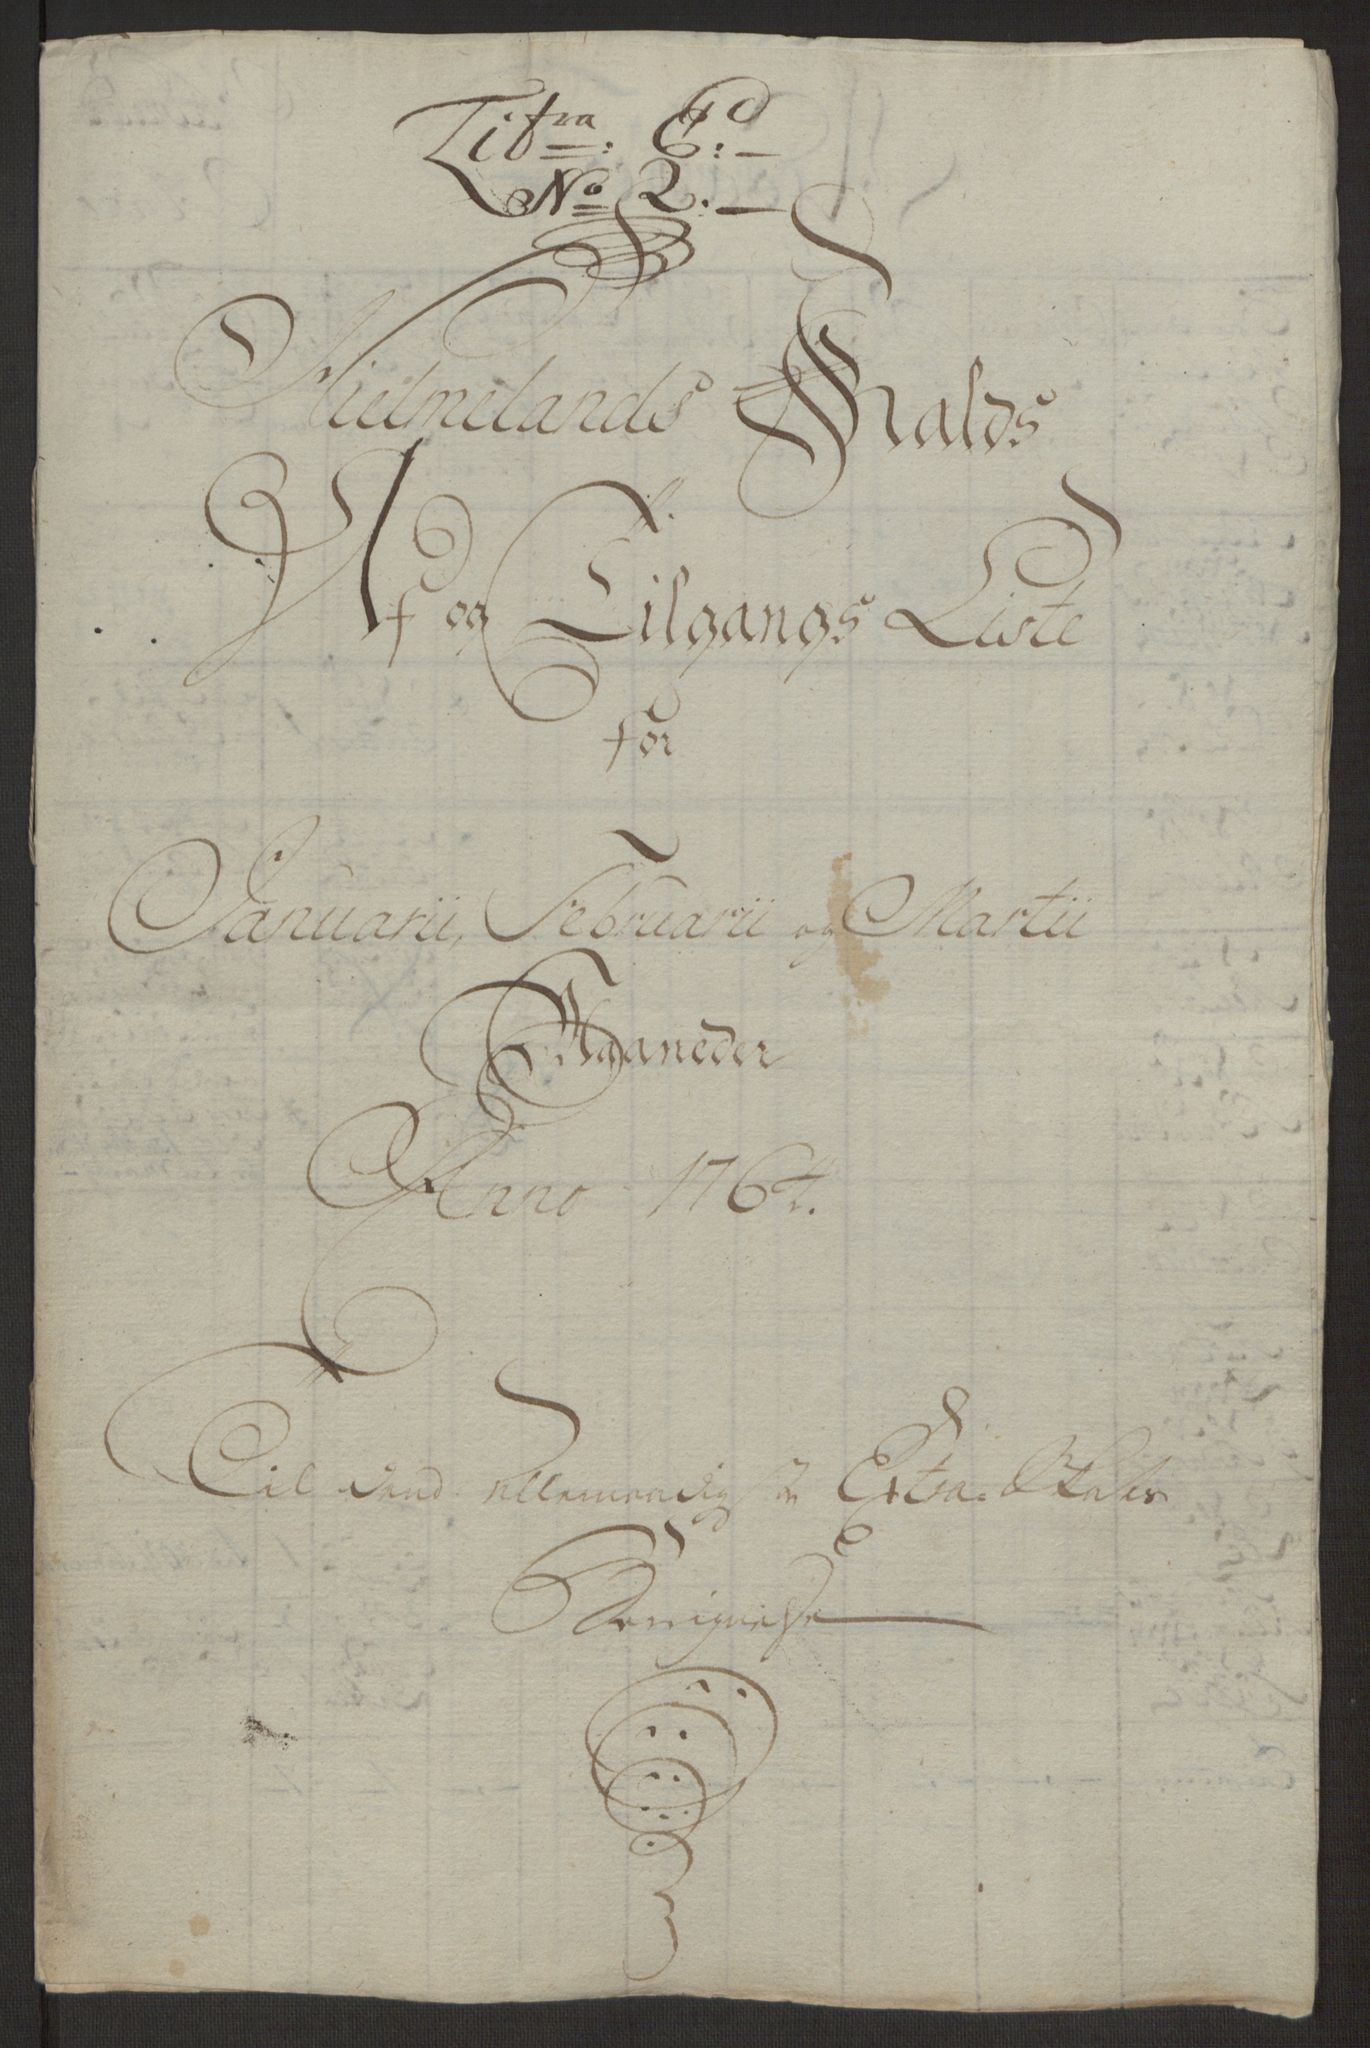 Litra: C:
No 2.
Hielmelands Gialds
Af og Tilgangs Liste
for
Januarii, Februarii og Martii
Maaneder
Anno 1764.
Til dend allernaadigste Extra Skatts